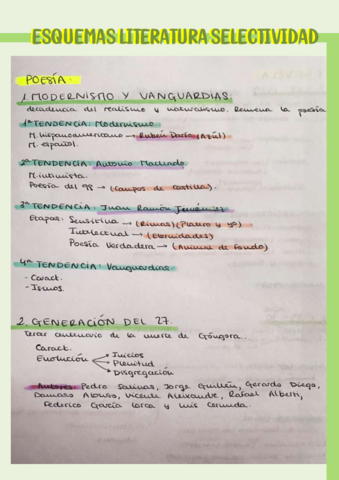 ESQUEMAS LITERATURA SELECTIVIDAD
POESÍA:
1. MODERNISMO Y VANGUARDIAS.
decadencia del realismo y naturalismo. Renueva la poesía
1ª TENDENCIA: Modernismo
M. hispanoamericano → Rubén Darío (Azul)
M. español.
2ª TENDENCIA: Antonio Machado
M. intimista.
Poesía del 98 → (Campos de castilla).
3ª TENDENCIA: Juan Ramón Jiménez
Etapas: Sensitiva → (Rimas) (Platero y yo)
Intelectual → (Eternidades)
Poesía Verdadera → (Animal de Fondo)
4ª TENDENCIA: Vanguardias
- Caract.
- Ismos.
2. GENERACIÓN DEL 27.
Tercer centenario de la muerte de Góngora.
Caract.
Evolución → Inicios
→ Plenitud
→ Disgregación
Autores: Pedro Salinas, Jorge Guillén, Gerardo Diego,
Damaso Alonso, Vicente Aleixandre, Rafael Alberti,
Federico García Lorca y Luis Cernuda.